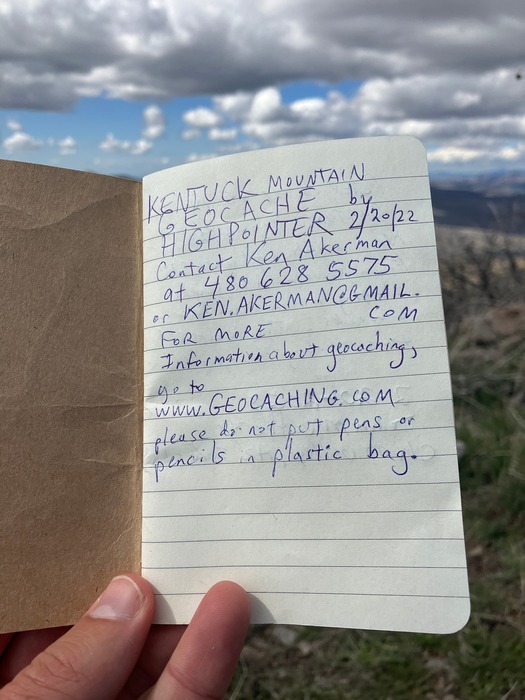 KENTUCK MOUNTAIN
GEOCACHE by
HIGHPOINTER 2/20/22
Contact Ken Akerman
at 480 628 5575
or KEN.AKERMAN@GMAIL.
COM
FOR MORE
Information about geocaching,
go to
WWW.GEOCACHING.COM
please do not put pens or
pencils in plastic bag.